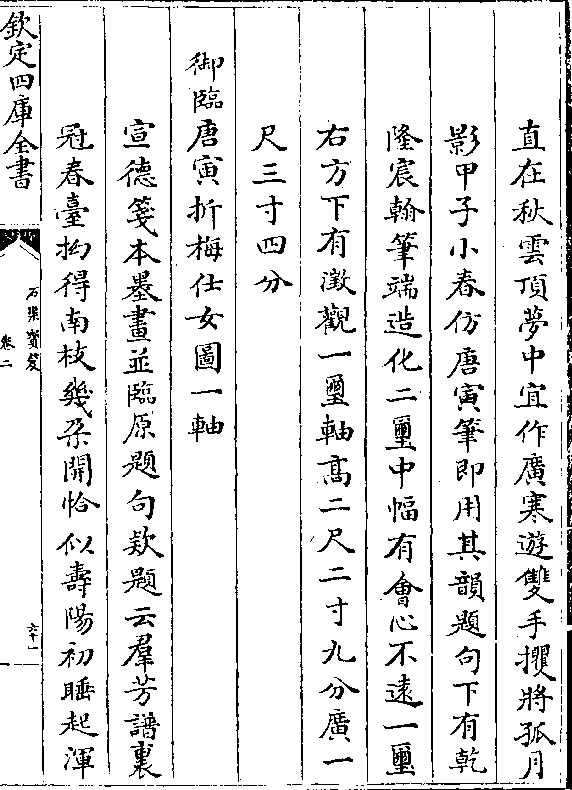 直在秋雲頂夢中宜作廣寒遊雙手攫將孤月
影甲子小春仿唐寅筆即用其韻題句下有乾
隆宸翰筆端造化二璽中幅有會心不遠一璽
右方下有澂觀一璽軸髙二尺二寸九分廣一
尺三寸四分
御臨唐寅折梅仕女圖一軸
宣德箋本墨畫並臨原題句款題云羣芳譜裏
冠春臺拗得南枝幾朶開恰似壽陽初睡起渾
欽定四庫全書
石渠寶笈
卷二
六十一